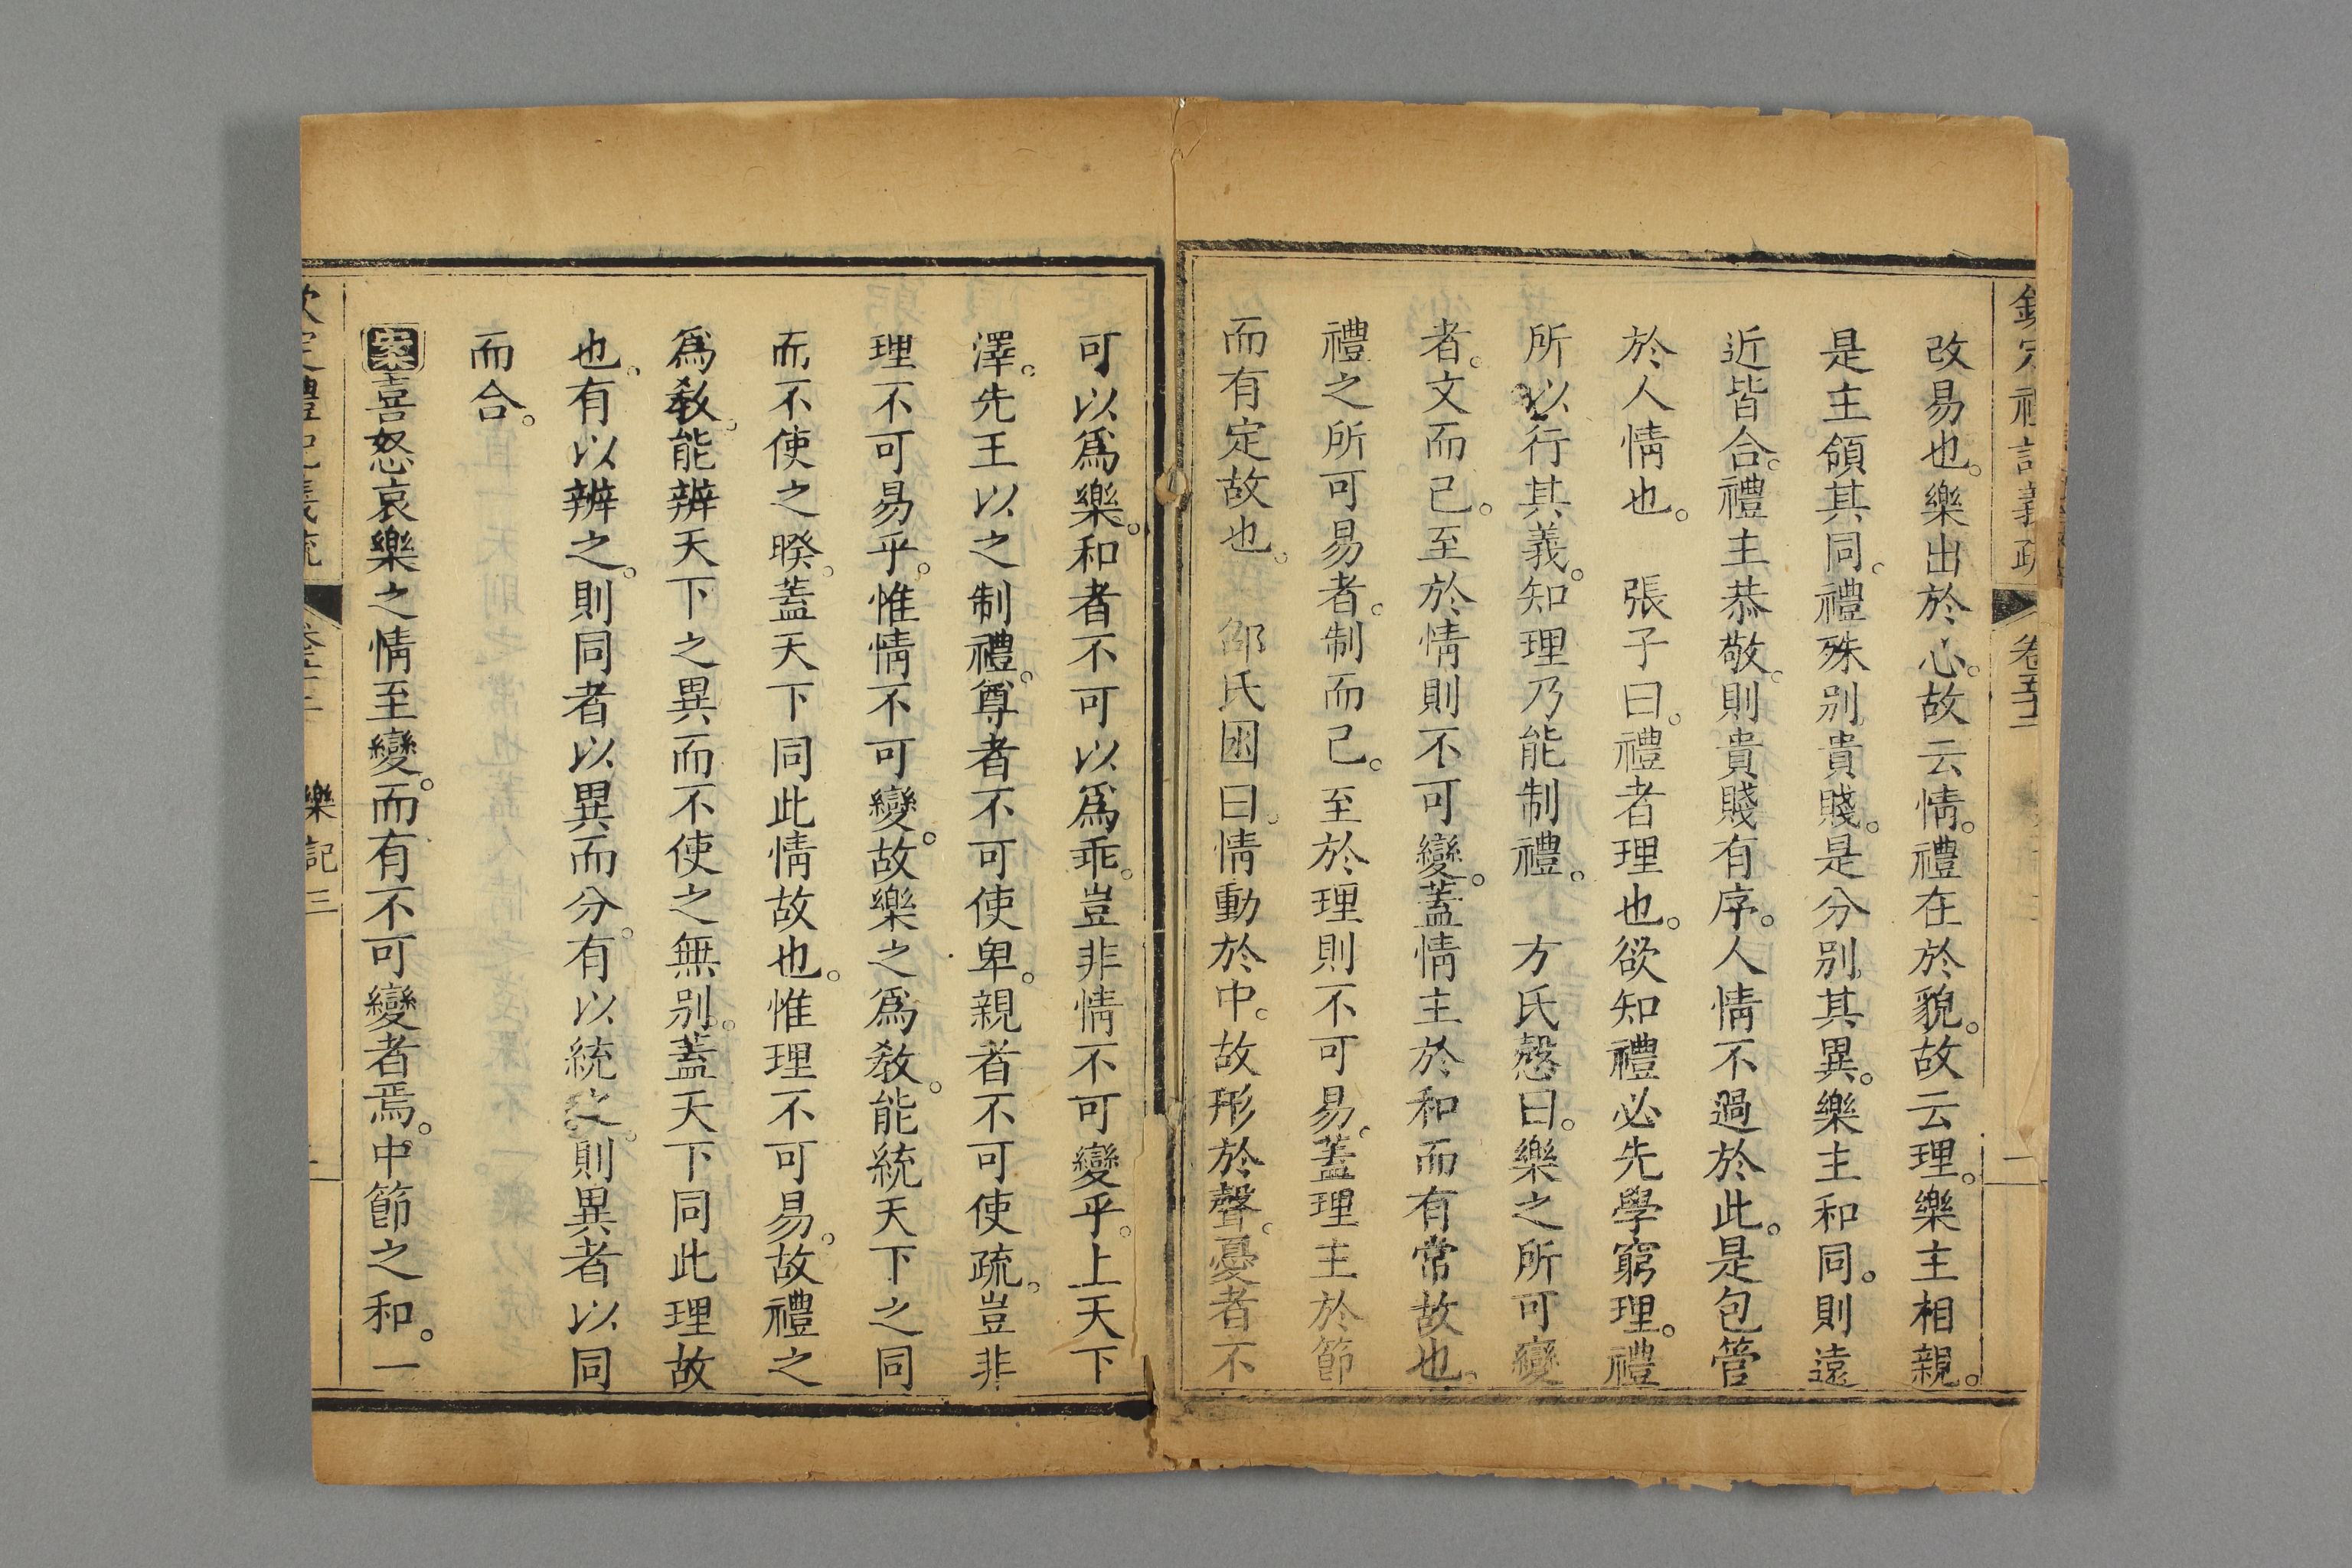 欽定禮記義疏 卷五十二
改易也。樂出於心。故云情。禮在於貌。故云理。樂主相親。
是主領其同。禮殊别貴賤。是分别其異。樂主和同。則遠
近皆合。禮主恭敬。則貴賤有序。人情不過於此。是包管
於人情也。 張子曰。禮者理也。欲知禮必先學窮理。禮
所以行其義。知理乃能制禮。 方氏慤曰。樂之所可變
者。文而已。至於情則不可變。蓋情主於和而有常故也。
禮之所可易者。制而已。至於理則不可易。蓋理主於節
而有定故也。 邵氏囦曰。情動於中。故形於聲。憂者不
可以爲樂。和者不可以爲乖。豈非情不可變乎。上天下
澤。先王以之制禮。尊者不可使卑。親者不可使疏。豈非
理不可易乎。惟情不可變。故樂之爲敎。能統天下之同
而不使之睽。蓋天下同此情故也。惟理不可易。故禮之
爲敎。能辨天下之異而不使之無别。蓋天下同此理故
也。有以辨之。則同者以異而分。有以統之。則異者以同
而合。
案喜怒哀樂之情至變。而有不可變者焉。中節之和。一
欽定禮記義疏 樂記三